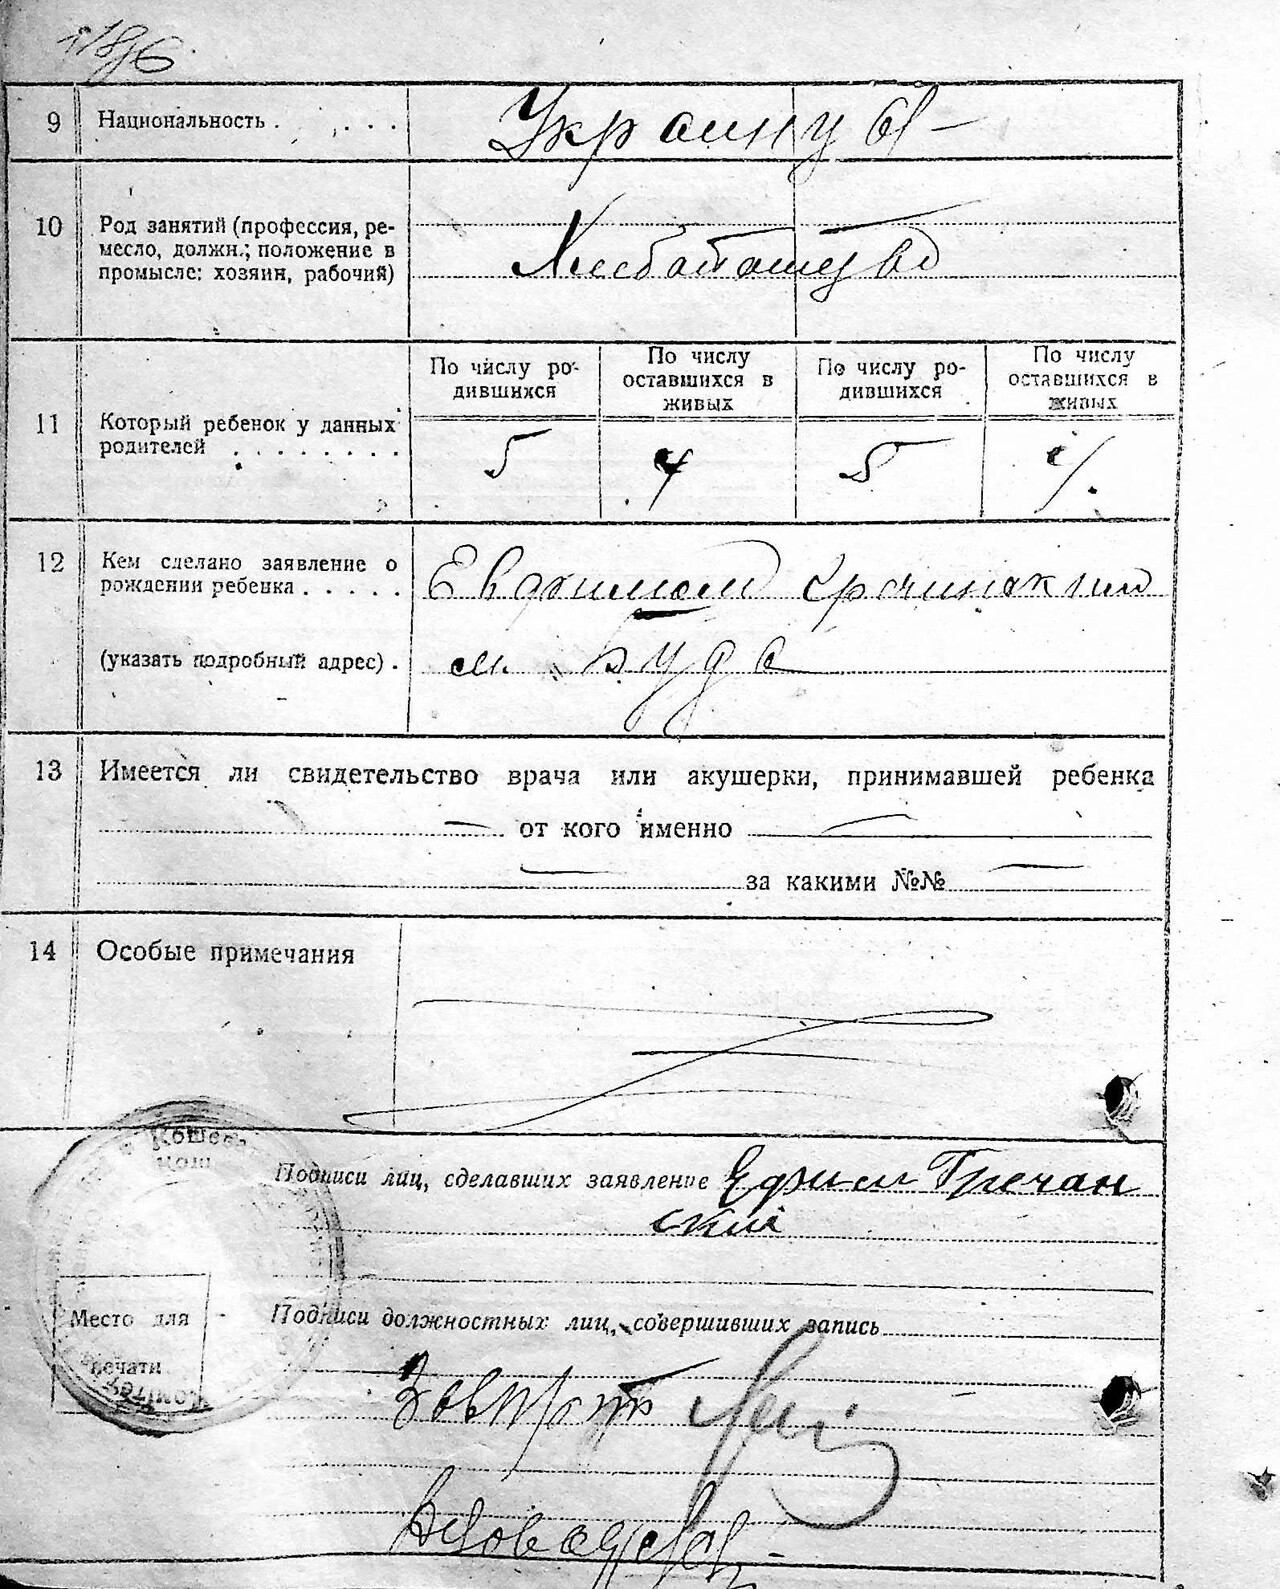 9 Национальность . . . . . Украинцы –
10 Род занятий (профессия, ре-
месло, должн.; положение в
промысле: хозяин, рабочий)
Хлебопашество
По числу ро-
дившихся
По числу
оставшихся в
живых
По числу ро-
дившихся
По числу
оставшихся в
живых
11 Который ребенок у данных
родителей . . . . . . . .
5 4 5
12 Кем сделано заявление о
рождении ребенка . . . . .
Евфимом
(указать подробный адрес) .
м. Буда
13 Имеется ли свидетельство врача или акушерки, принимавшей ребенка
— от кого именно —
— за какими №№ —
14 Особые примечания
Кошева
Подписи лиц, сделавших заявление Ефим Гречан
ский
Место для
печати
Подписи должностных лиц, совершивших запись